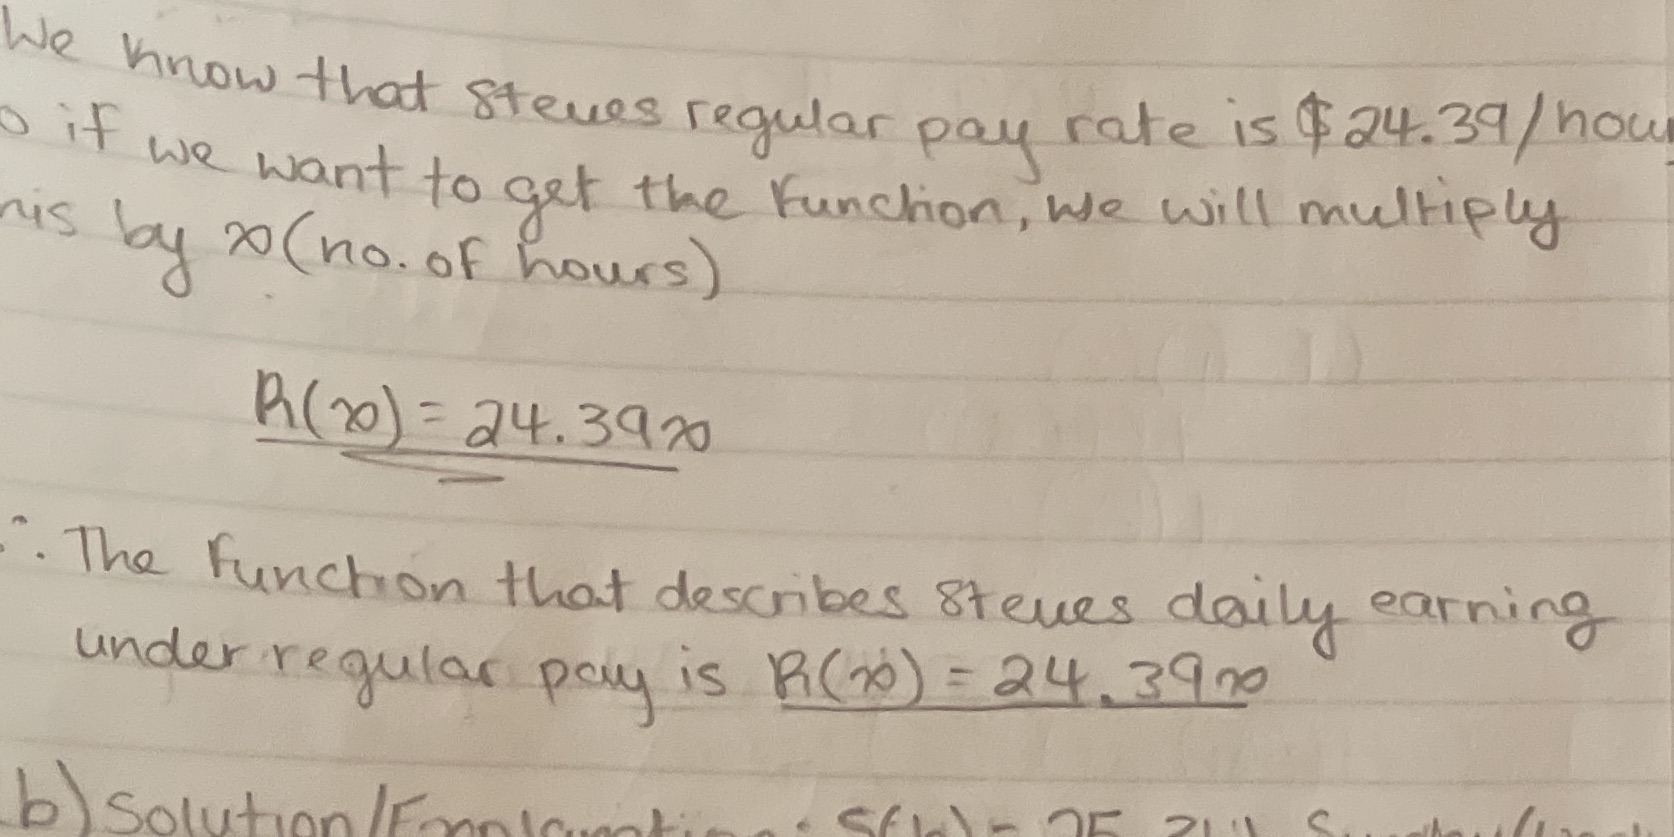 We know that Steves regular pay rate is $24.39/hou
o if we want to get the function, we will multiply
his by x(no. of hours)
R(x) = 24.39x
∴ The function that describes Steves daily earning
under regular pay is R(x) = 24.39x
b) Solution/